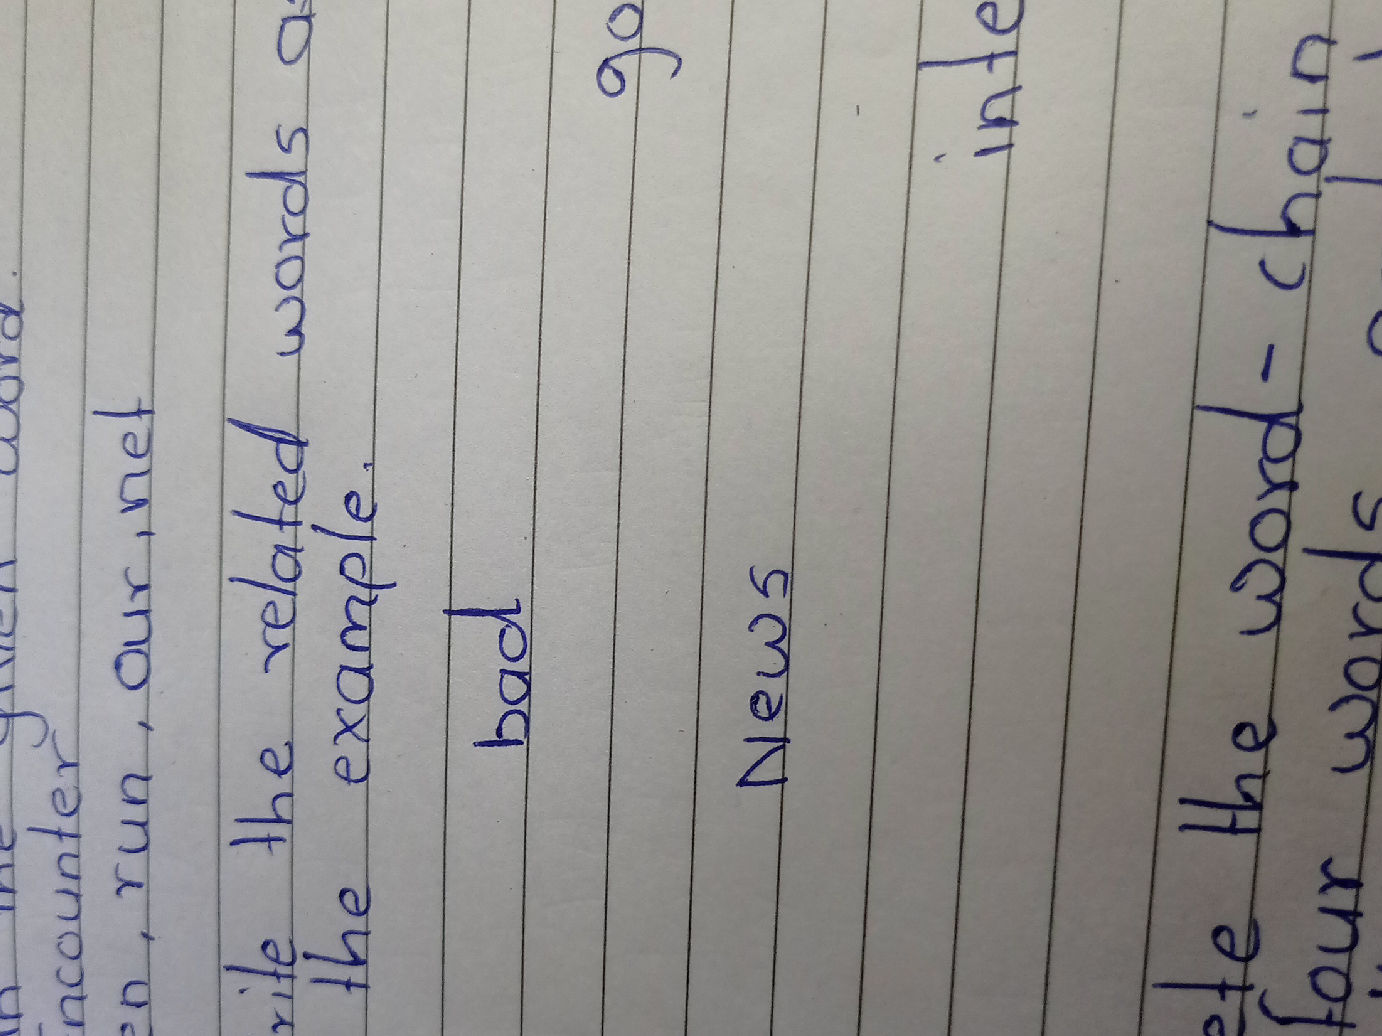 in the given word.
encounter
en, run, our, net
rite the related words as
the example.
bad
go
News
inte
ete the word-chain
four words